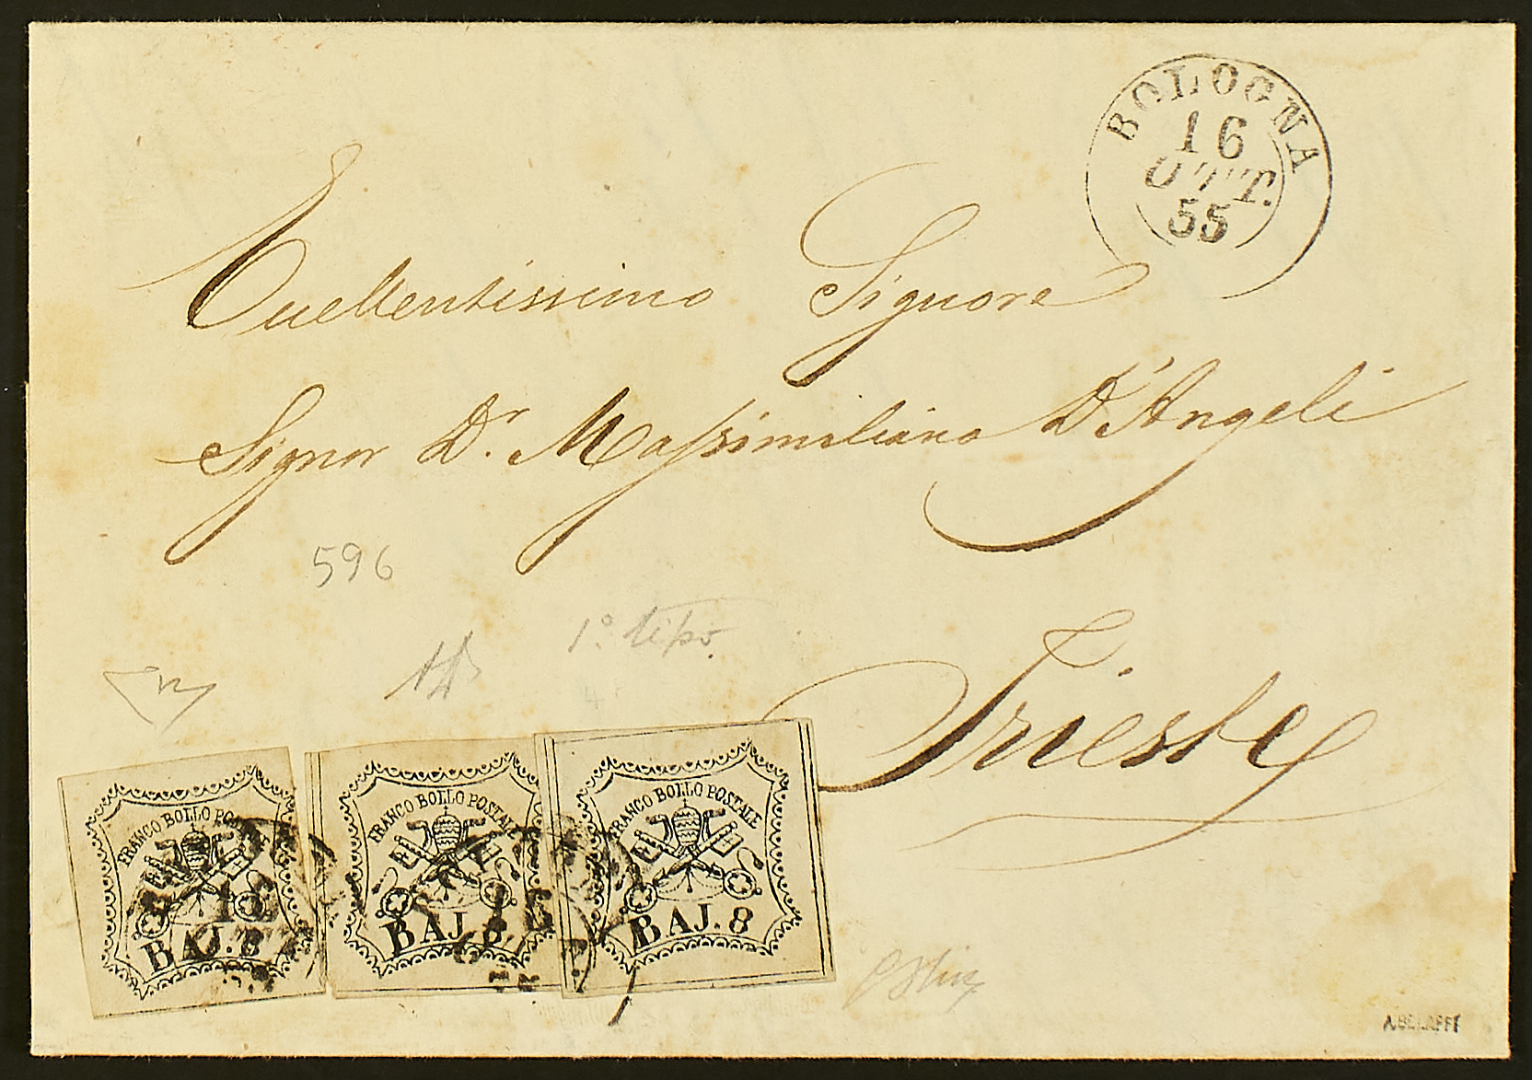 BOLOGNA
16
OTT.
55
Eccellentissimo Signore
Signor Dr. Massimiliano D'Angeli
596
1º tipo.
Trieste
FRANCO BOLLO POSTALE
BAJ. 8
FRANCO BOLLO POSTALE
BAJ. 8
FRANCO BOLLO POSTALE
BAJ. 8